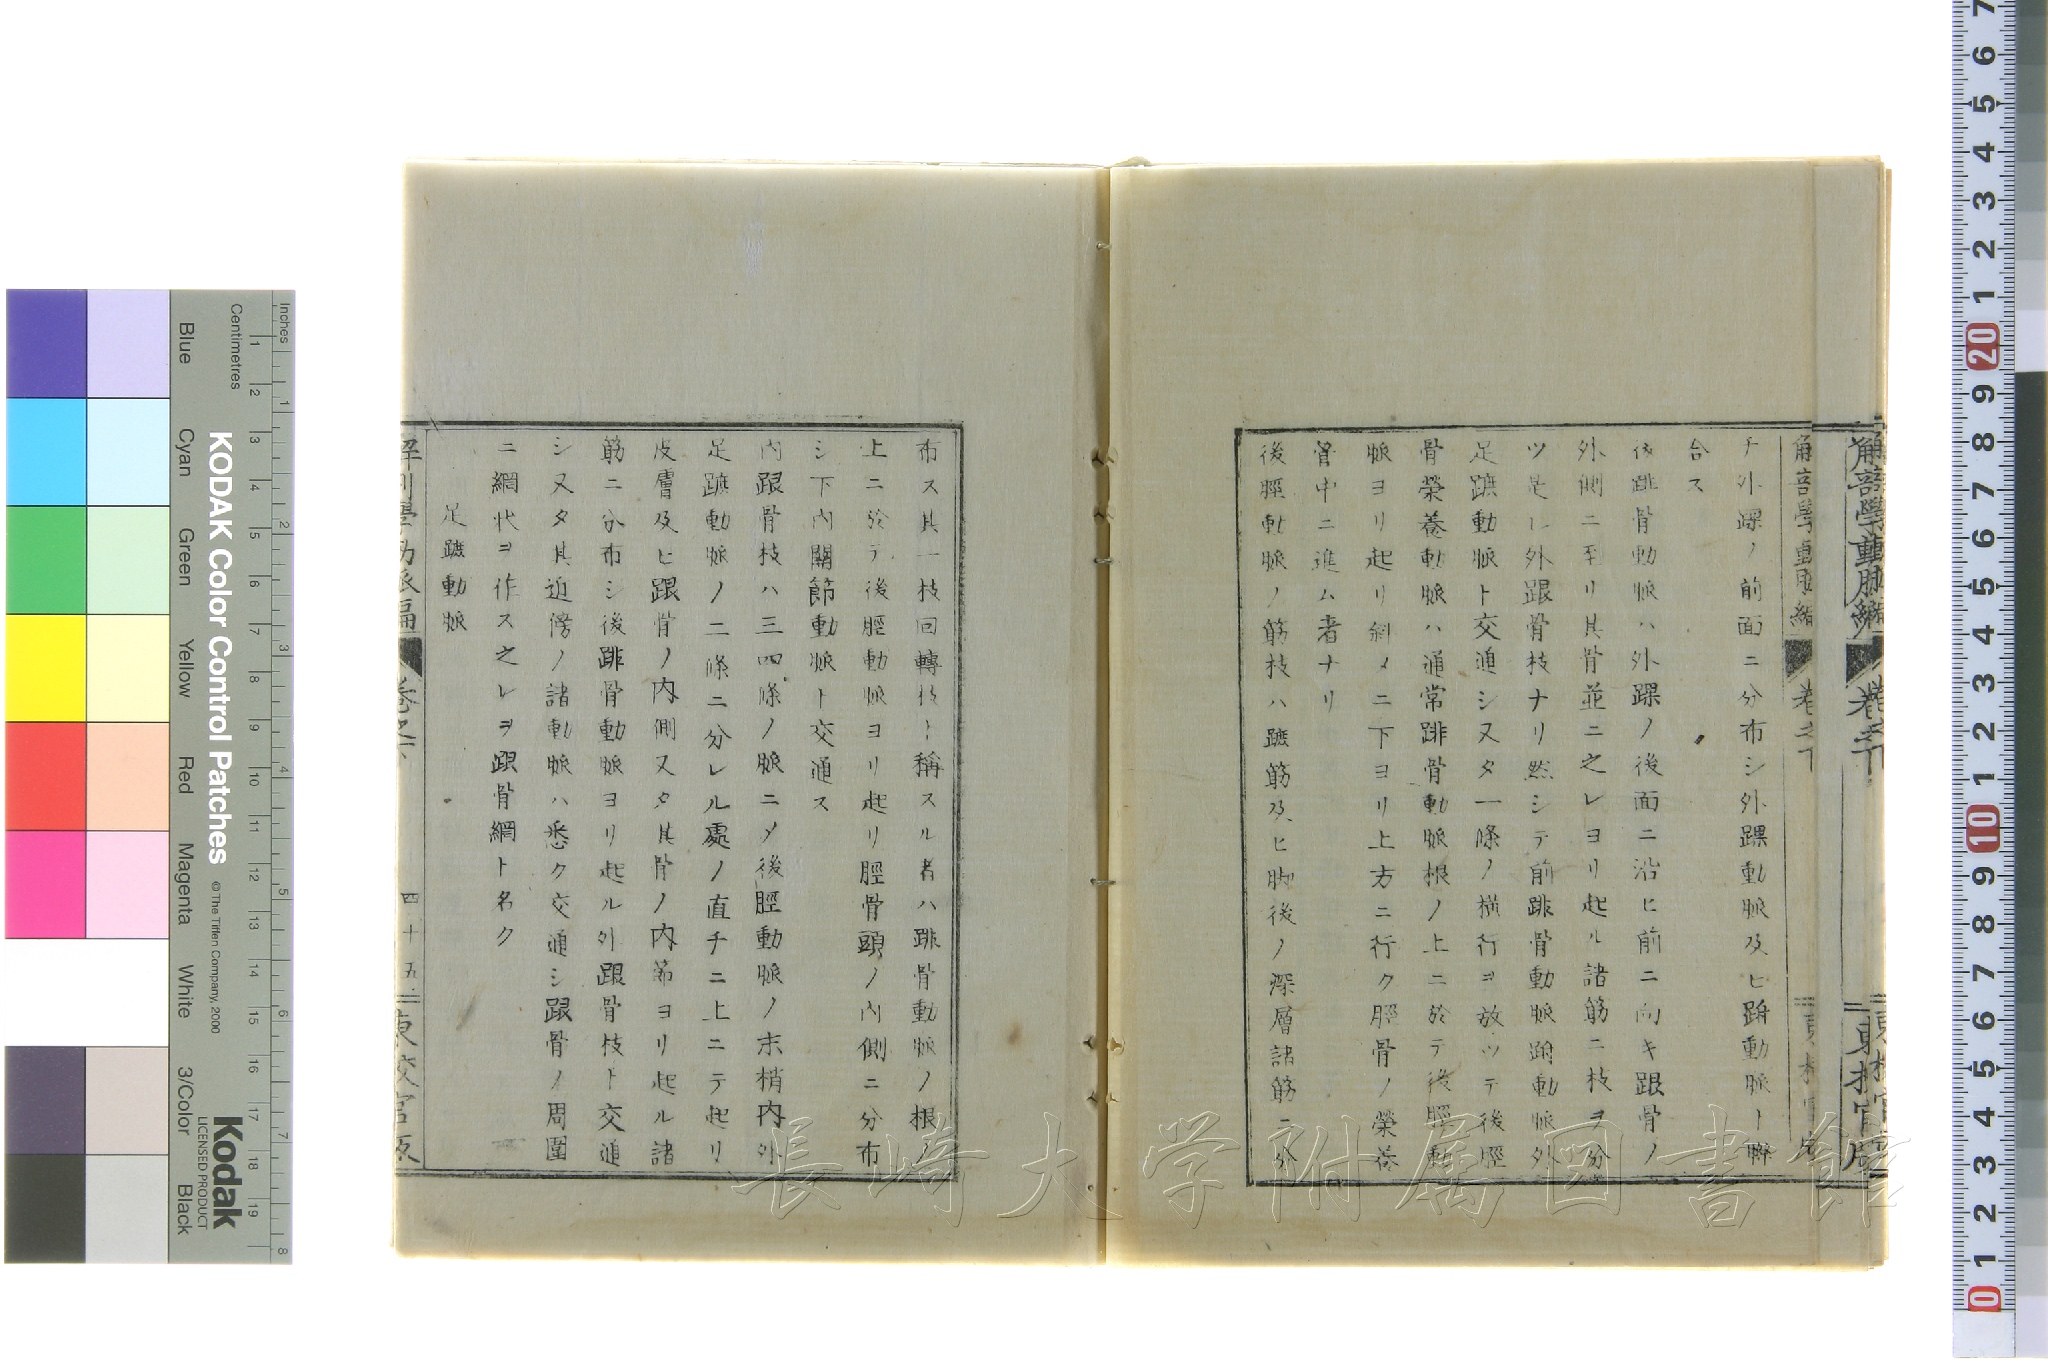 チ外踝ノ前面ニ分布シ外踝動脈及ヒ跗動脈ト聯
合ス
後跳骨動脈ハ外踝ノ後面ニ沿ヒ前ニ向キ跟骨ノ
外側ニ至リ其骨並ニ之レヨリ起ル諸筋ニ枝ヲ分
ツ是レ外跟骨枝ナリ然シテ前跳骨動脈跗動脈外
足蹠動脈ト交通シ又タ一條ノ横行ヲ放ツテ後脛
骨榮養動脈ハ通常跳骨動脈根ノ上ニ於テ後脛動
脈ヨリ起リ斜メニ下ヨリ上方ニ行ク脛骨ノ榮養
骨中ニ進ム者ナリ
後脛動脈ノ筋枝ハ蹠筋及ヒ脚後ノ深層諸筋ニ分
布ス其一枝回轉枝ト稱スル者ハ跳骨動脈ノ根ノ
上ニ於テ後脛動脈ヨリ起リ脛骨頭ノ内側ニ分布
シ下内關節動脈ト交通ス
内跟骨枝ハ三四條ノ脈ニメ後脛動脈ノ末梢内外
足蹠動脈ノ二條ニ分レル處ノ直チニ上ニテ起リ
皮膚及ヒ跟骨ノ内側又タ其骨ノ内部ヨリ起ル諸
筋ニ分布シ後跳骨動脈ヨリ起ル外跟骨枝ト交通
シ又タ其近傍ノ諸動脈ハ悉ク交通シ跟骨ノ周圍
ニ網状ヲ作ス之レヲ跟骨網ト名ク
足蹠動脈
解剖學動脈編 卷之下 四十五 東校官版
長崎大学附属図書館
KODAK Color Control Patches
© The Tiffen Company, 2000
Kodak
LICENSED PRODUCT
Inches
Centimetres
Blue Cyan Green Yellow Red Magenta White 3/Color Black